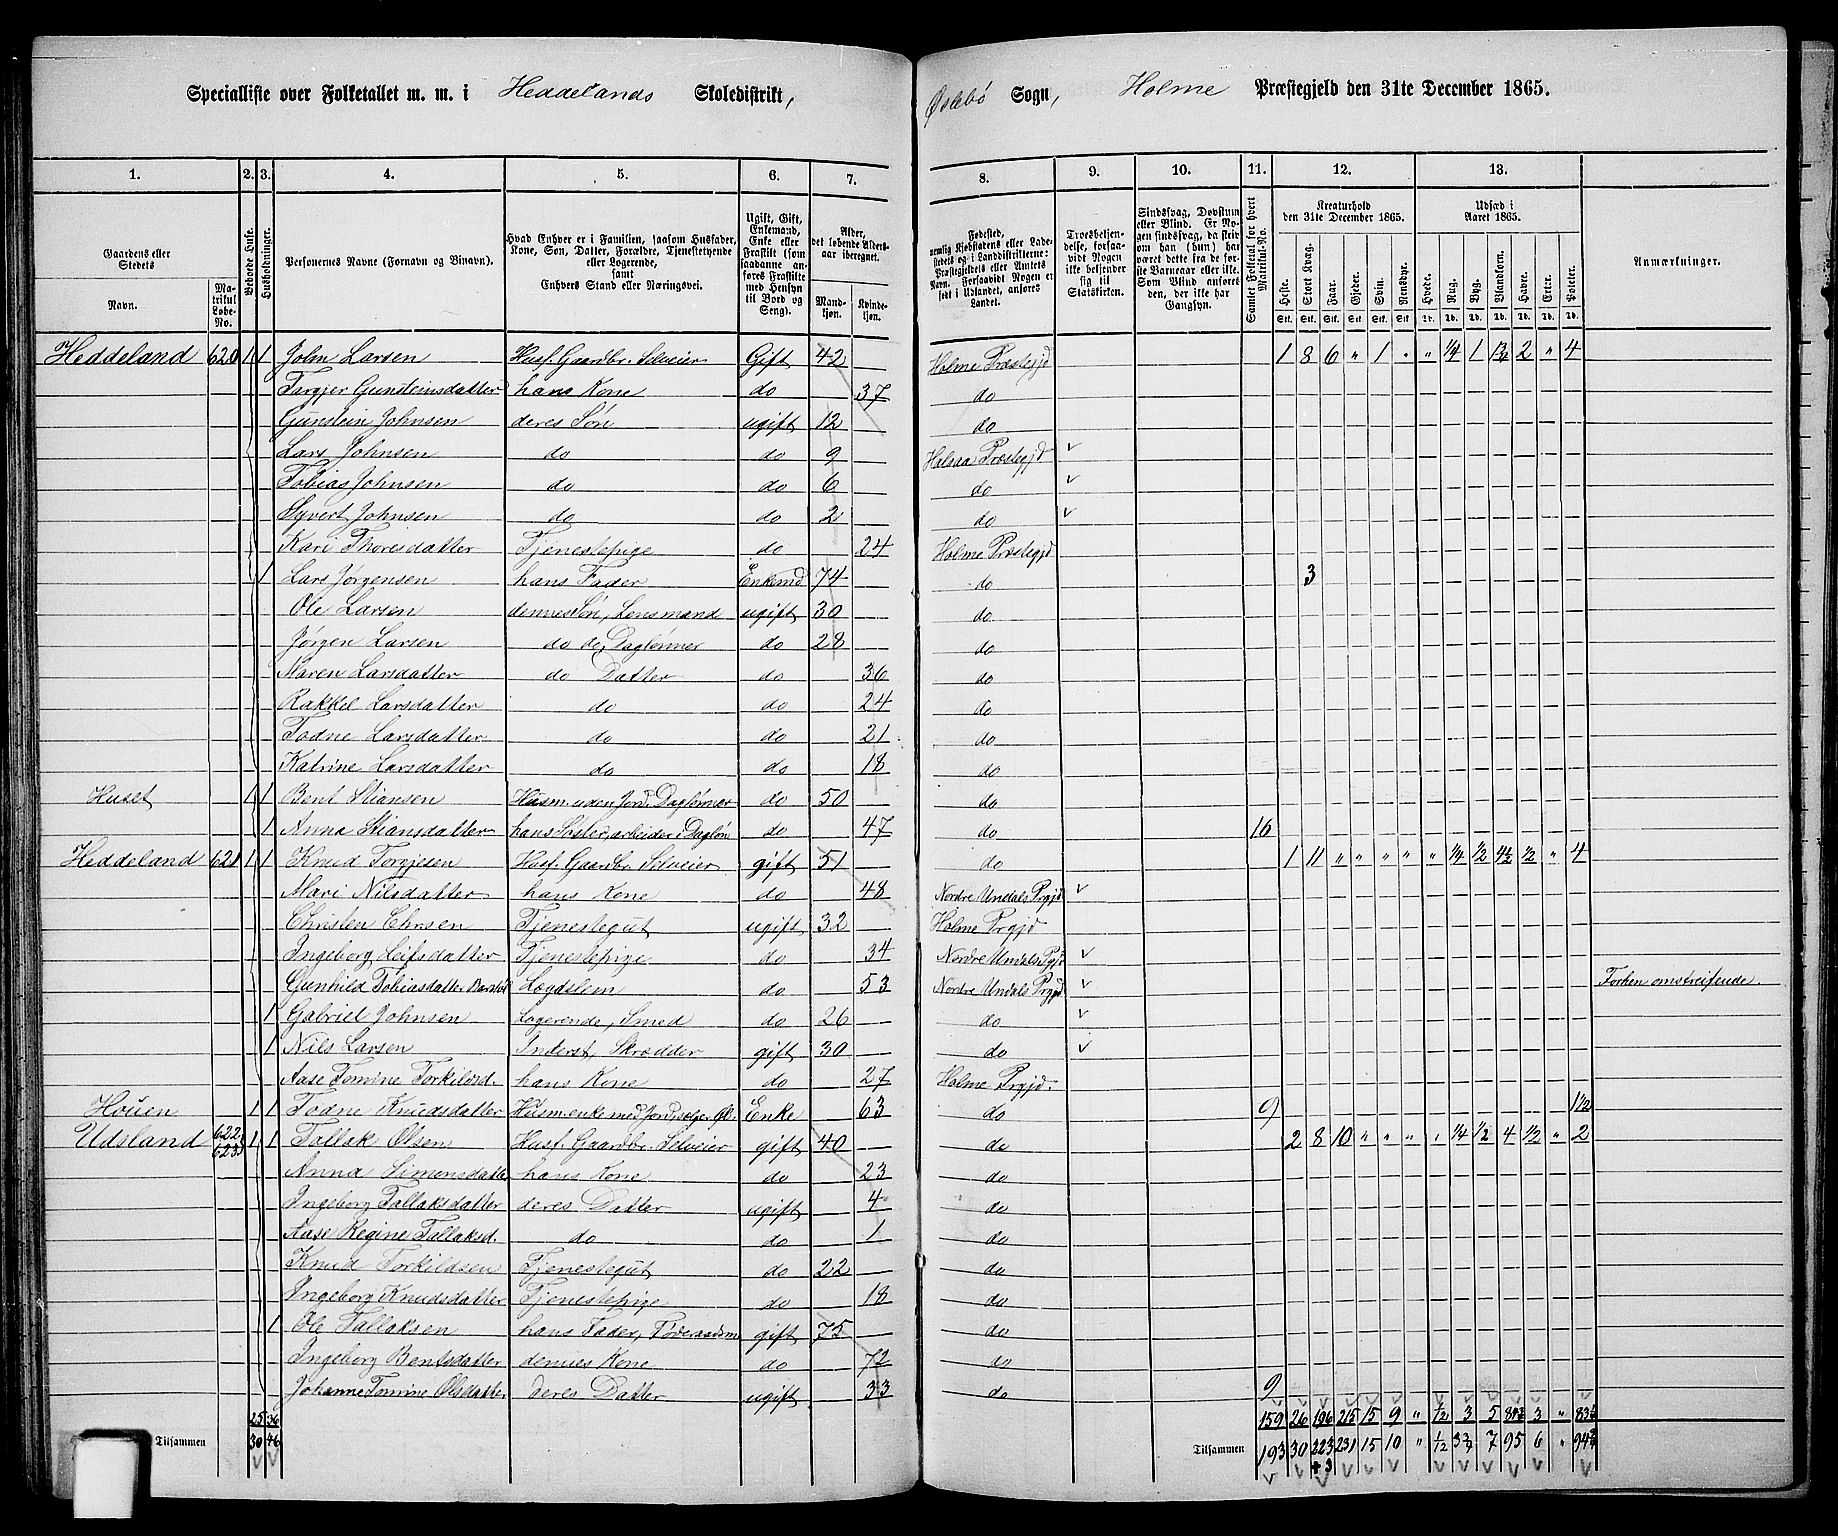 Specialliste over Folketallet m. m. i Heddelands Skoledistrikt, Øslebø Sogn, Holme Præstegjeld den 31te December 1865.
1. 2. 3. 4. 5. 6. 7. 8. 9. 10. 11. 12. 13.
Gaardens eller Stedets
Navn. Matrikul Løbe-No.
Beboede Huse.
Husholdninger.
Personernes Navne (Fornavn og Tilnavn).
Hvad Enhver er i Familien, saasom Husfader, Kone, Søn, Datter, Forældre, Tjenestetyende eller Logerende, samt Enhvers Stand eller Næringsvei.
Ugift, Gift, Enkemand, Enke eller Fraskilt (som saadanne anføres Fraskilte med Hensyn til Bord og Seng).
Alder, det løbende Alders-aar iberegnet.
Mandkjøn. Kvindekjøn.
Fødested,
Troesbekjendelse, forsaavidt Nogen ikke bekjender sig til Statskirken.
Sindssvag, Døvstum eller Blind.
Kreaturhold den 31te December 1865.
Udsæd i Aaret 1865.
Heste. Stort Kvæg. Faar. Gjeder. Svin. Rensdyr. Hvede. Rug. Byg. Blandkorn. Havre. Erter. Poteter.
Anmærkninger.
Heddeland 620 1 1 John Larsen Husf. Gaardbr. Selveier Gift 42 Holme Præstegjd 1 8 6 " 1 " " 1/4 1 1 1/2 2 " 4
Torgjer Gunsteinsdatter hans Kone do 37 do
Gunstein Johnsen deres Søn ugift 12 do
Lars Johnsen do do 9 Halsaa Præstegjd v
Tobias Johnsen do do 6 do v
Syvert Johnsen do do 2 do v
Kari Thoresdatter Tjenestepige do 24 Holme Præstegjd
1 Lars Jørgensen hans Fader Enkemd 74 do 3
Ole Larsen dennes Søn, Lensmand ugift 30 do
Jørgen Larsen do do, Daglønner do 28 do
Maren Larsdatter do Datter do 36 do
Rakkel Larsdatter do do 24 do
Todne Larsdatter do do 21 do
Katrine Larsdatter do do 18 do
Huset 1 1 Bent Stiansen Husm. uden Jord. Daglønner do 50 do
1 Anna Stiansdatter hans Søster, arbeider i Dagløn do 47 do 16
Heddeland 621 1 1 Knud Torgjesen Husf. Gaardbr. Selveier gift 51 do 1 11 " " " " " 1/4 1/2 4 1/2 1/2 " 4
Mari Nilsdatter hans Kone do 48 Nordre Undals Prgjd v
Christen Chrsen Tjenestegut ugift 32 Holme Prgjd
Ingeborg Leifsdatter Tjenestepige do 34 Nordre Undals Prgjd v
Gunhild Tobiasdatter Lægdslem do 53 Nordre Undals Prgjd v omstreifende.
1 Gabriel Johnsen Logerende, Smed do 26 do v
1 Nils Larsen Inderst, Skrædder gift 30 do v
Aase Tomine Torkildsd. hans Kone do 27 Holme Prgjd.
Houen 1 1 Todne Knudsdatter Husm. enke med Jord, sælger Øl. Enke 63 do 9 1 1/2
Udsland 622 623 1 1 Tallak Olsen Husf. Gaardbr. Selveier gift 40 do 2 8 10 " " " " 1/4 1/2 4 1/2 " 2
Anna Simensdatter hans Kone do 23 do
Ingeborg Tallaksdatter deres Datter ugift 4 do
Aase Regine Tallaksd. do do 1 do
Knud Torkildsen Tjenestegut do 22 do
Ingeborg Knudsdatter Tjenestepige do 18 do
1 Ole Tallaksen hans Fader, Føderaadsm gift 75 do
Ingeborg Bentsdatter dennes Kone do 72 do
Johanne Tomine Olsdatter deres Datter ugift 33 do 9
25 36 159 26 196 215 15 9 " 1/2 3 5 3 "
Tilsammen 30 46 Tilsammen 193 30 223 231 15 10 " 1/2 7 95 6 "
+3